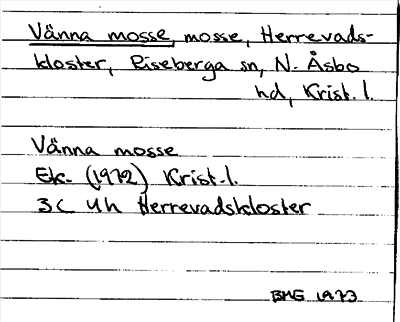 Vänna mosse, mosse, Herrevads-
kloster, Riseberga sn, N. Åsbo
hd, Krist. l.
Vänna mosse
Ek. (1972) Krist. l.
3C 4h Herrevadskloster
BMG 1973